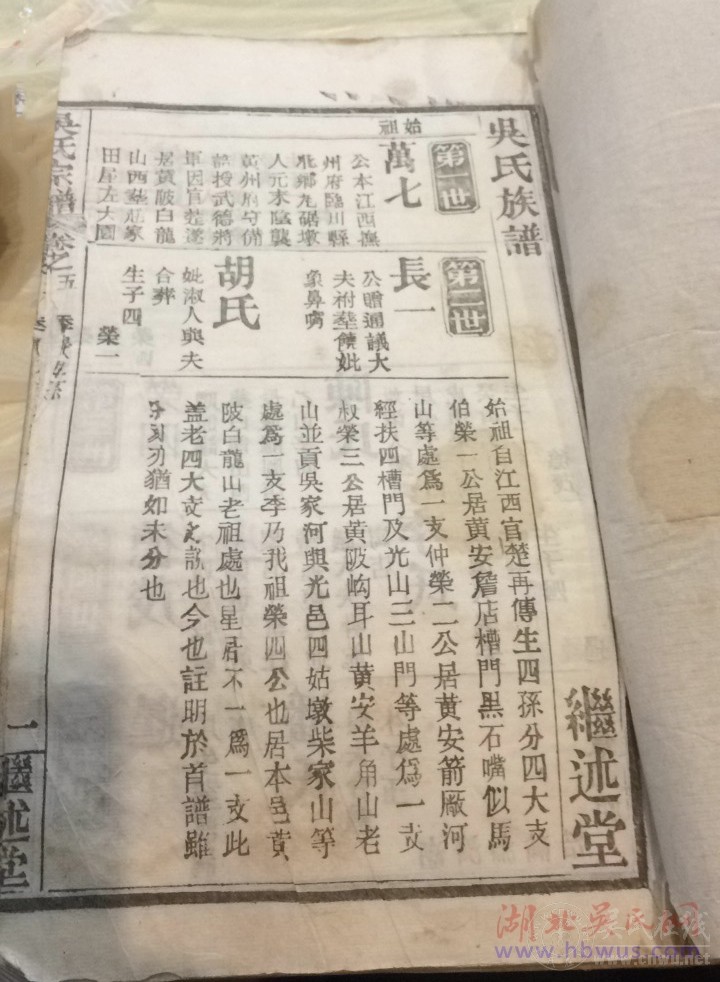 吳氏族譜
繼述堂
第一世
始祖
萬七
公本江西撫
州府臨川縣
北鄉九碣墩
人元末蔭襲
黃州府守備
誥授武德將
軍因官楚遂
居黃陂白龍
山西塟莊家
田屋左大園
第二世
長一
公贈通議大
夫祔塟饒妣
象鼻嘴
胡氏
妣淑人與夫
合葬
生子四
榮一
始祖自江西官楚再傳生四孫分四大支
伯榮一公居黃安詹店槽門黑石嘴似馬
山等處為一支仲榮二公居黃安箭厰河
經扶四槽門及光山三山門等處為一支
叔榮三公居黃陂岣耳山黃安羊角山老
山並貢吳家河與光邑四姑墩柴家山等
處為一支季乃我祖榮四公也居本邑黃
陂白龍山老祖處也星居不一為一支此
盖老四大支之說也今也註明於首譜雖
猶如未分也
吳氏宗譜
卷之五
一
繼述堂
湖北吴氏在线
www.hbwus.com
www.cnwu.net